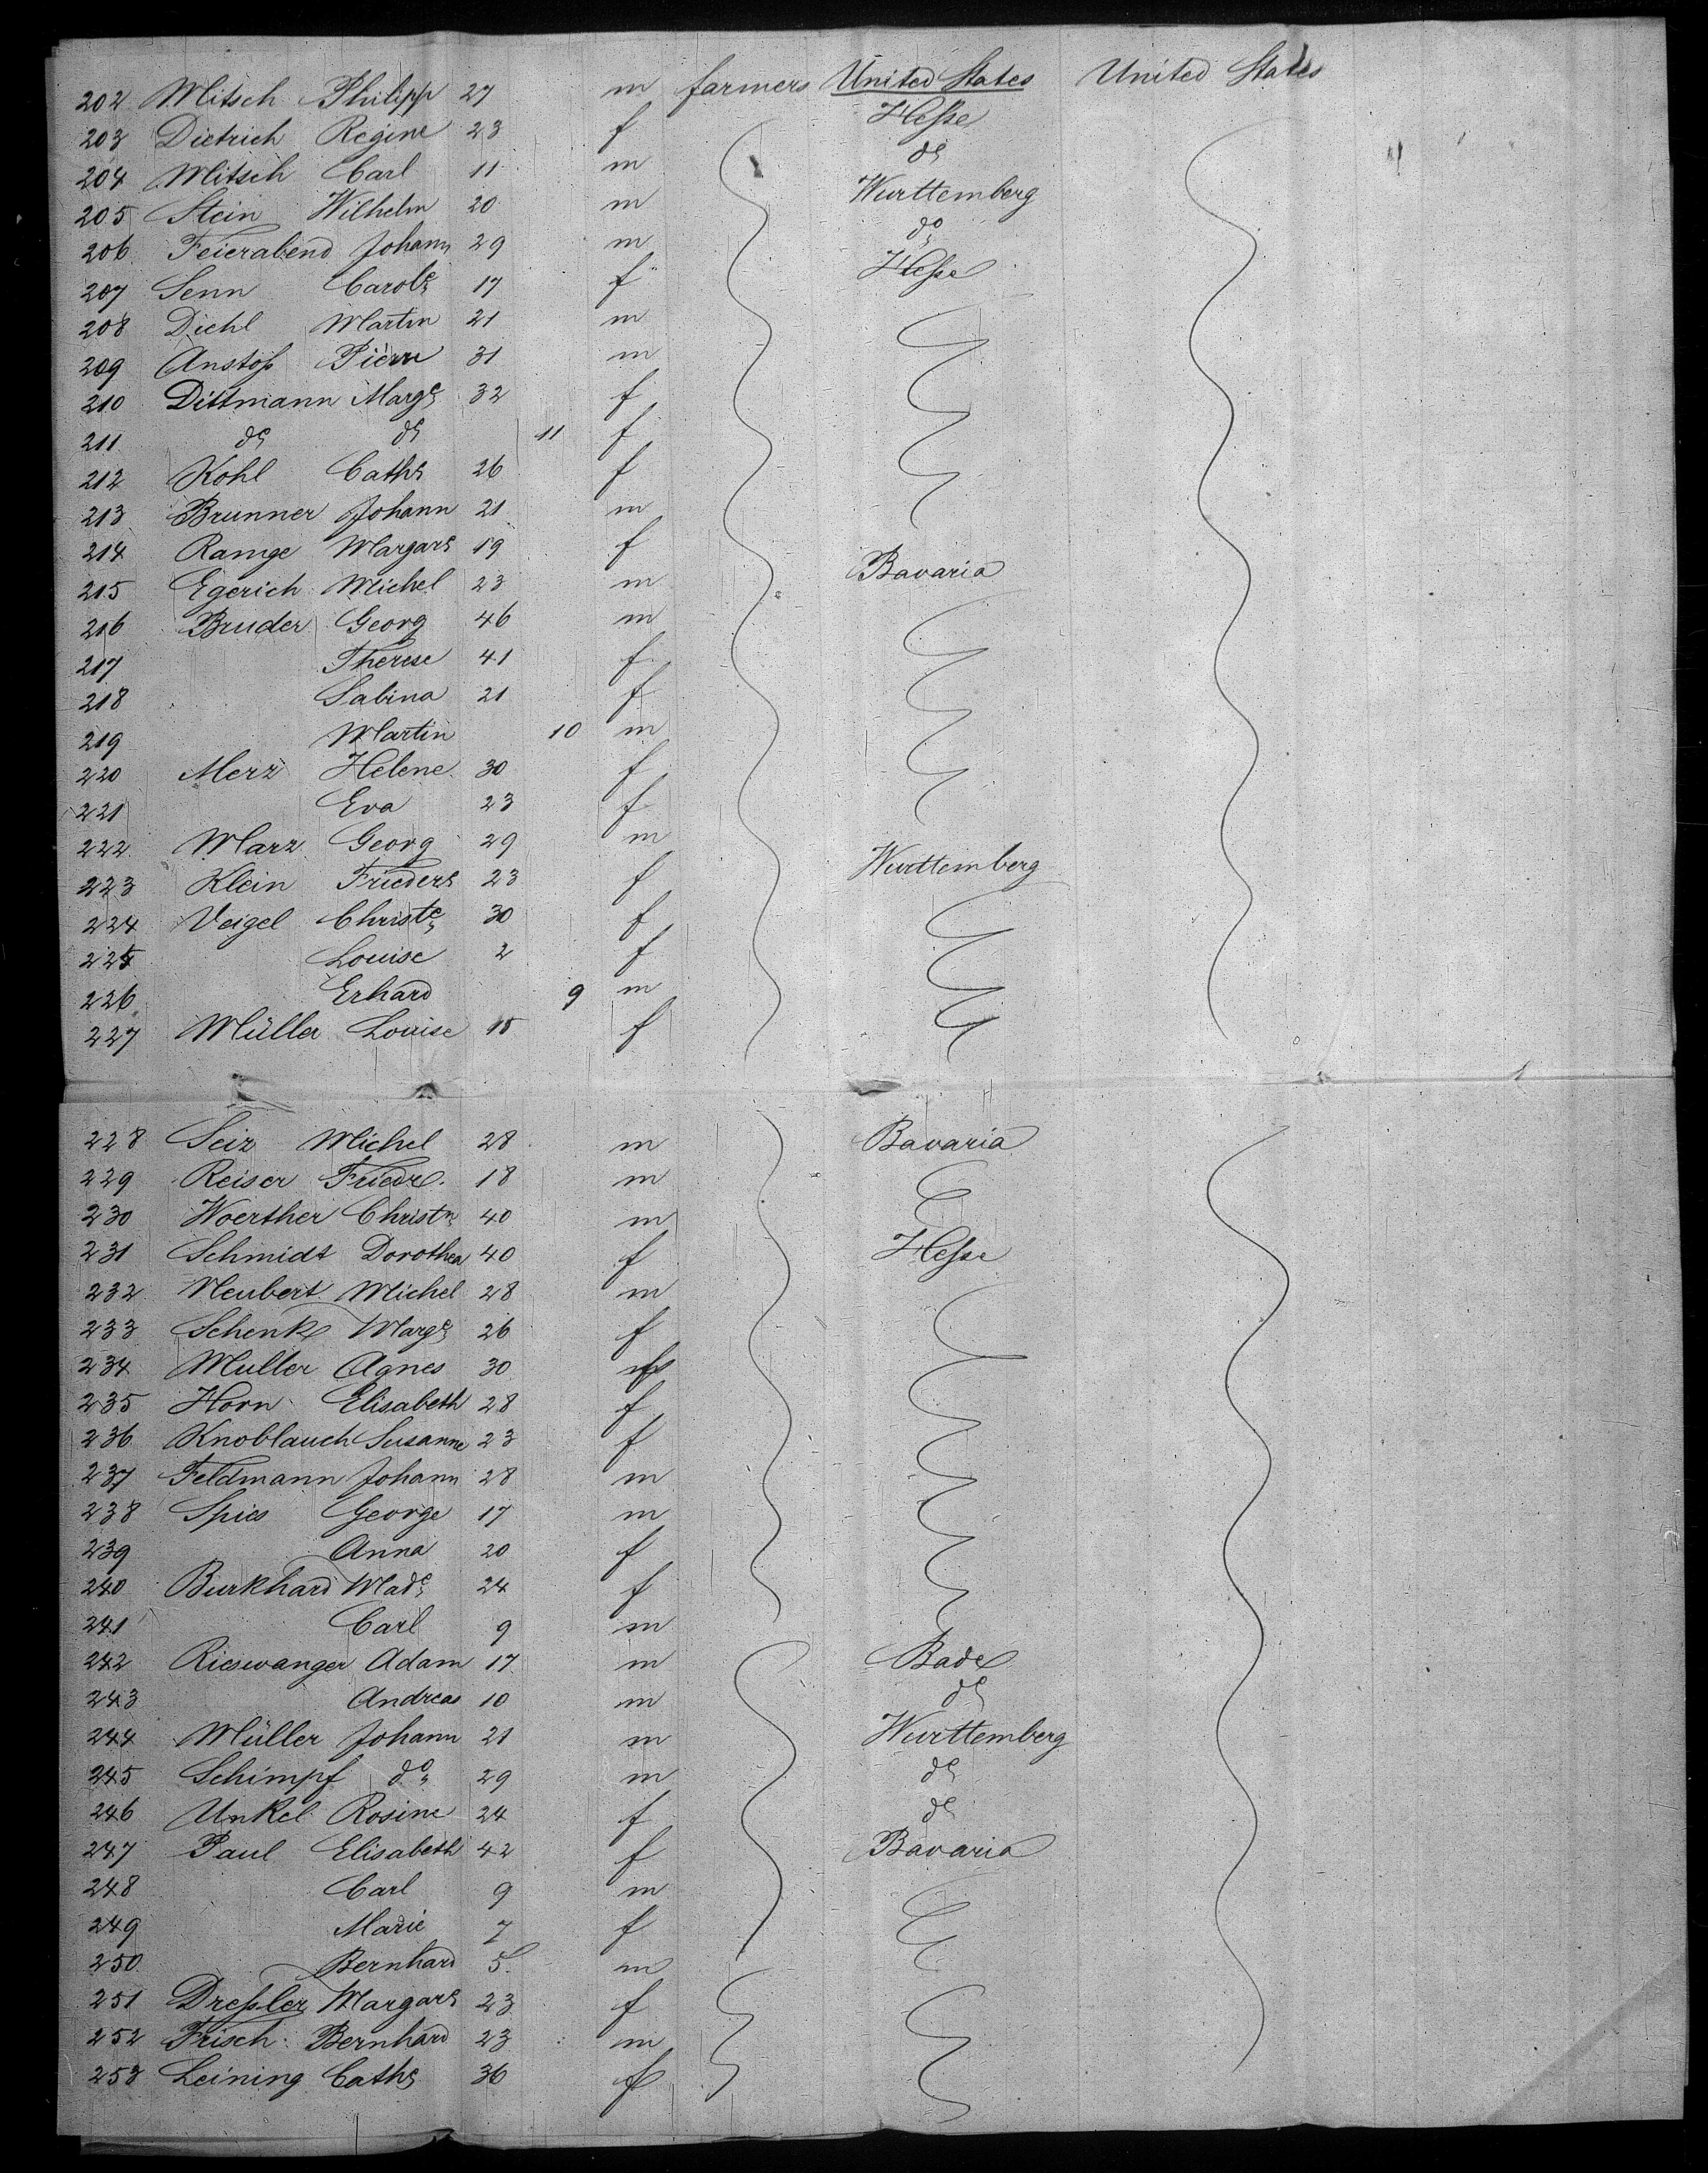 202 Mitsch Philipp 27 m farmers United States United States
203 Dietrich Regine 23 f Hesse
204 Mitsch Carl 11 m do
205 Stein Wilhelm 20 m Wurttemberg
206 Feierabend Johann 29 m do
207 Senn Carole 17 f Hesse
208 Diehl Martin 21 m
209 Anstoß Pierre 31 m
210 Dittmann Marge 32 f
211 do do 11 f
212 Kohl Cathe 26 f
213 Brunner Johann 21 m
214 Ramge Margare 19 f
215 Egerich Michel 23 m Bavaria
216 Bruder Georg 46 m
217 Therese 41 f
218 Sabina 21 f
219 Martin 10 m
220 Merz Helene 30 f
221 Eva 23 f
222 Marz Georg 29 m
223 Klein Friedere 23 f Wurttemberg
224 Veigel Christe 30 f
225 Louise 2 f
226 Erhard 9 m
227 Müller Louise 15 f
228 Seiz Michel 28 m Bavaria
229 Reiser Friedr. 18 m
230 Woerther Christn 40 m
231 Schmidt Dorothea 40 f Hesse
232 Neubert Michel 28 m
233 Schenk Marge 26 f
234 Muller Agnes 30 f
235 Horn Elisabeth 28 f
236 Knoblauch Susanne 23 f
237 Feldmann Johann 28 m
238 Spies George 17 m
239 Anna 20 f
240 Burkhard Made 24 f
241 Carl 9 m
242 Rieswanger Adam 17 m Bade
243 Andreas 10 m do
244 Müller Johann 21 m Wurttemberg
245 Schimpf do 29 m do
246 Unkel Rosine 24 f do
247 Paul Elisabeth 42 f Bavaria
248 Carl 9 m
249 Marie 7 f
250 Bernhard 5 m
251 Dreßler Margare 23 f
252 Frisch Bernhard 23 m
253 Leining Cathe 36 f